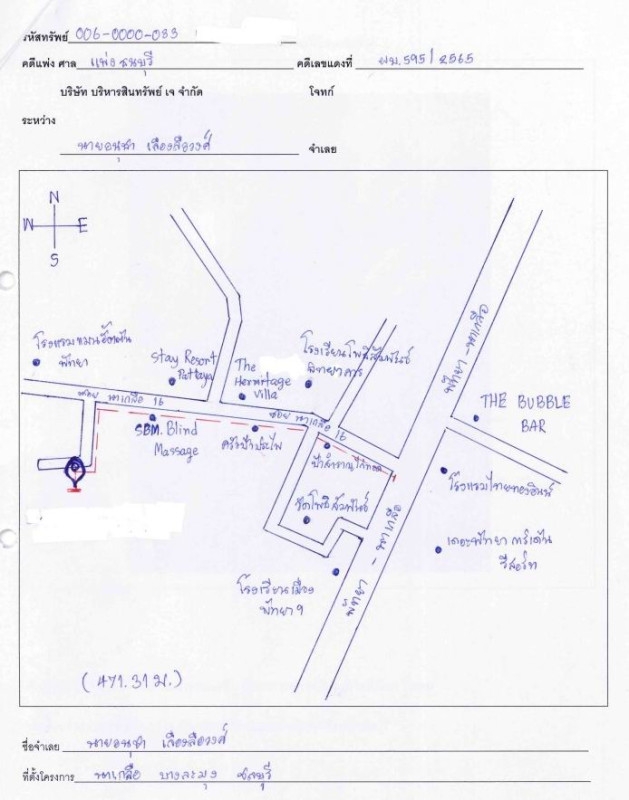 รหัสทรัพย์ 006-0000-083
คดีแพ่ง ศาล แพ่งธนบุรี คดีเลขแดงที่ ผบ.595/2565
บริษัท บริหารสินทรัพย์ เจ จำกัด โจทก์
ระหว่าง
นายอนุชา เลืองลือวงศ์ จำเลย
N
W E
S
โรงแรมแมนฮัตตัน
พัทยา
Stay Resort
Pattaya
The
Hermitage
Villa
โรงเรียนโพธิสัมพันธ์
พิทยาคาร
พัทยา - นาเกลือ
THE BUBBLE
BAR
ซอย นาเกลือ 16
ซอย นาเกลือ 16
SBM. Blind
Massage
ครัวป้าประไพ
วัดโพธิสัมพันธ์
โรงแรมไทยทองอินท์
เดอะพัทยา การ์เด้น
รีสอร์ท
โรงเรียนเมือง
พัทยา 9
พัทยา - นาเกลือ
(471.31 ม.)
ชื่อจำเลย นายอนุชา เลืองลือวงศ์
ที่ตั้งโครงการ นาเกลือ บางละมุง ชลบุรี